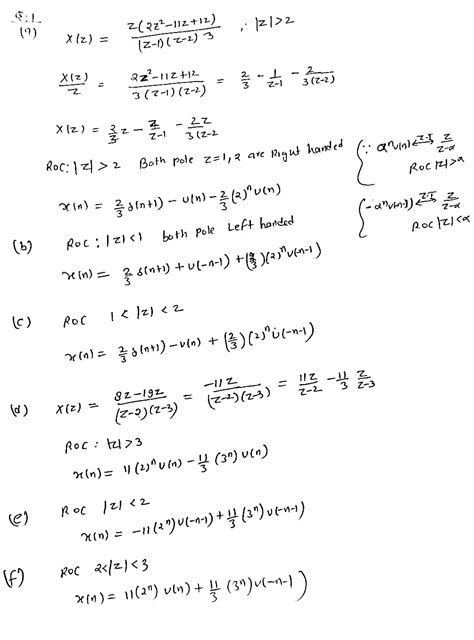 Q:1
(a) X(z) = z(2z²-11z+12) / (z-1)(z-2) 3 ∴ |z|>2
X(z)/z = 2z²-11z+12 / 3(z-1)(z-2) = 2/3 - 1/z-1 - 2/3(z-2)
X(z) = 2/3 z - z/z-1 - 2z/3(z-2
ROC: |z| > 2 Both pole z=1,2 are Right handed
{∵ αⁿu(n) ←Z.T→ z/z-α
ROC |z|>α
x(n) = 2/3 δ(n+1) - u(n) - 2/3 (2)ⁿ u(n)
{-αⁿu(-n-1) ←Z.T→ z/z-α
ROC |z|<α
(b) ROC: |z|<1 both pole Left handed
x(n) = 2/3 δ(n+1) + u(-n-1) + (2/3)(2)ⁿ u(-n-1)
(c) ROC 1 < |z| < 2
x(n) = 2/3 δ(n+1) - u(n) + (2/3)(2)ⁿ u(-n-1)
(d) X(z) = 8z-19z / (z-2)(z-3) = -11z / (z-2)(z-3) = 11z/z-2 - 11/3 z/z-3
ROC: |z|>3
x(n) = 11(2)ⁿ u(n) - 11/3 (3ⁿ) u(n)
(e) ROC |z| < 2
x(n) = -11(2ⁿ) u(-n-1) + 11/3 (3ⁿ) u(-n-1)
(f) ROC 2<|z|<3
x(n) = 11(2ⁿ) u(n) + 11/3 (3ⁿ) u(-n-1)